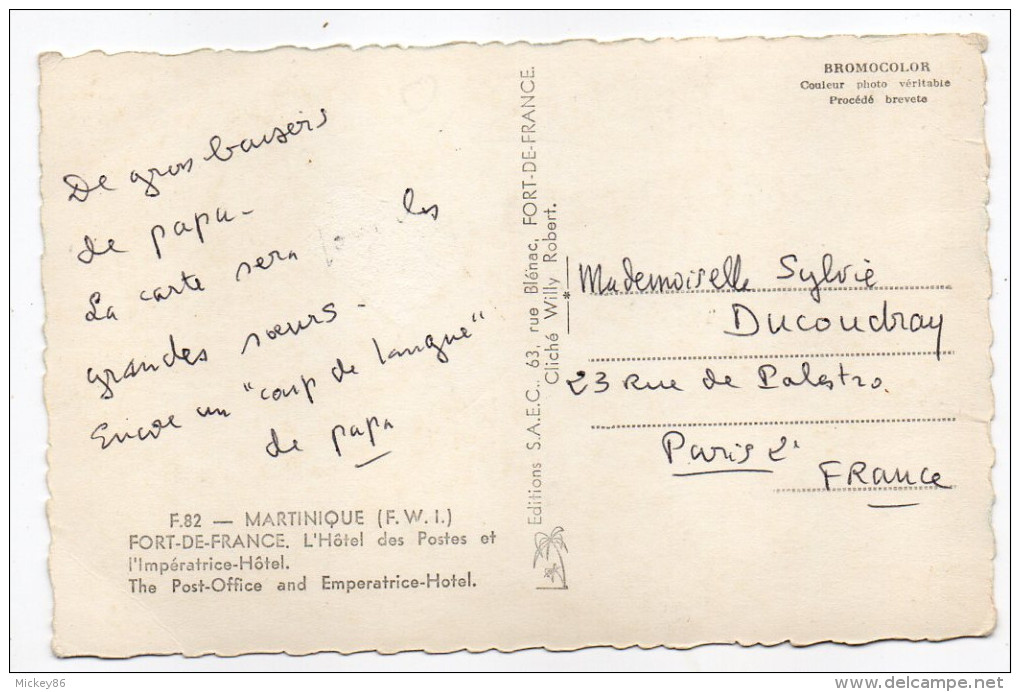 De gros baisers
de papa -
La carte sera pour les
grandes sœurs -
Encore un "coup de langue"
de papa
F.82 — MARTINIQUE (F. W. I.)
FORT-DE-FRANCE. L'Hôtel des Postes et
l'Impératrice-Hôtel.
The Post-Office and Emperatrice-Hotel.
Editions S.A.E.C., 63, rue Blénac, FORT-DE-FRANCE.
Cliché Willy Robert.
BROMOCOLOR
Couleur photo véritable
Procédé breveté
Mademoiselle Sylvie
Ducoudray
23 Rue de Palestro
Paris 2e
FRance
Mickey86
delcampe.net